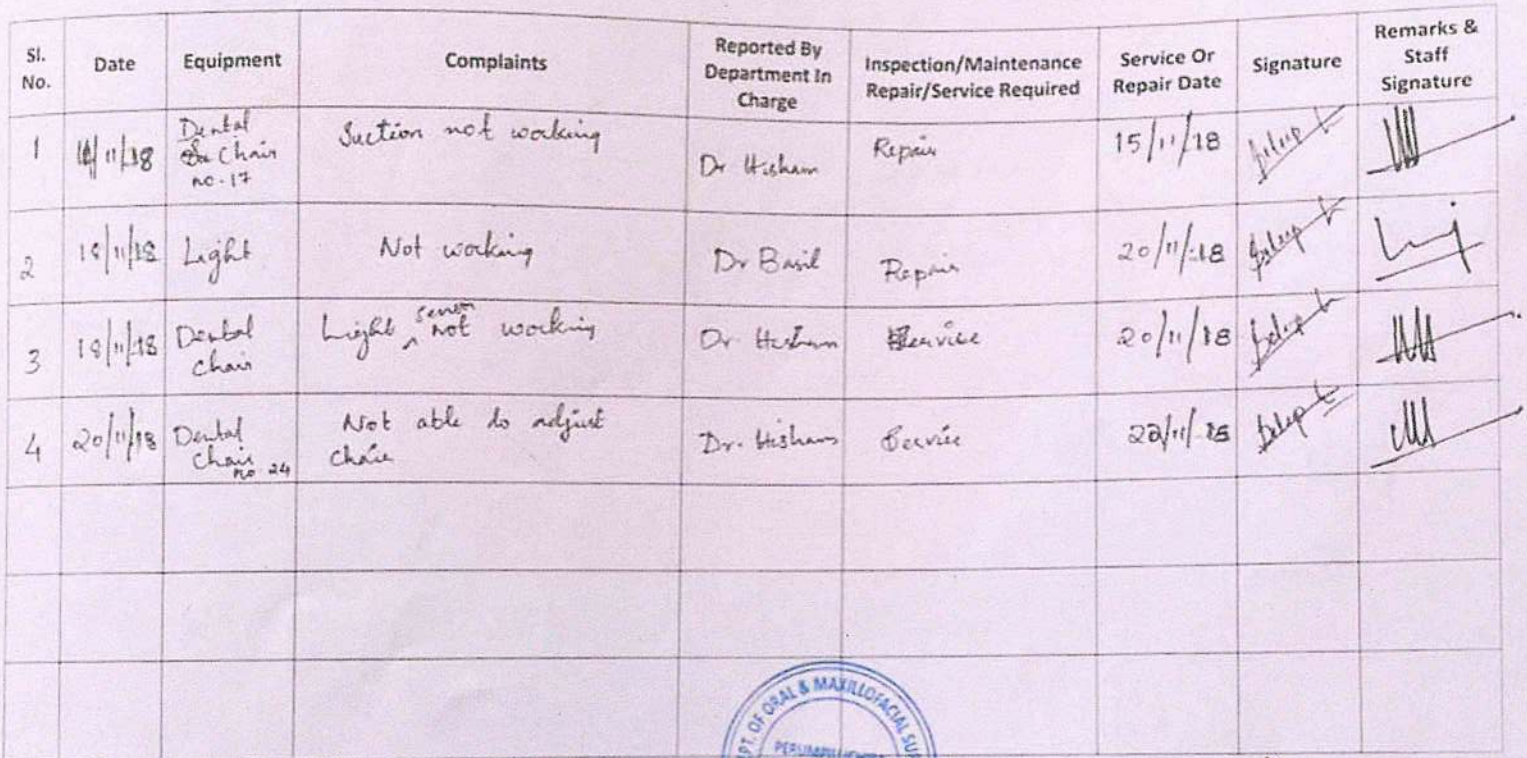 Sl. No. Date Equipment Complaints Reported By Department In Charge Inspection/Maintenance Repair/Service Required Service Or Repair Date Signature Remarks & Staff Signature
1 /11/18 Dental Chair no-17 Suction not working Dr Hisham Repair 15/11/18
2 18/11/18 Light Not working Dr Basil Repair 20/11/18
3 18/11/18 Dental Chair Light sensor not working Dr Hisham Service 20/11/18
4 20/11/18 Dental Chair no 24 Not able to adjust chair Dr. Hisham Service 22/11/18
DEPT. OF ORAL & MAXILLOFACIAL